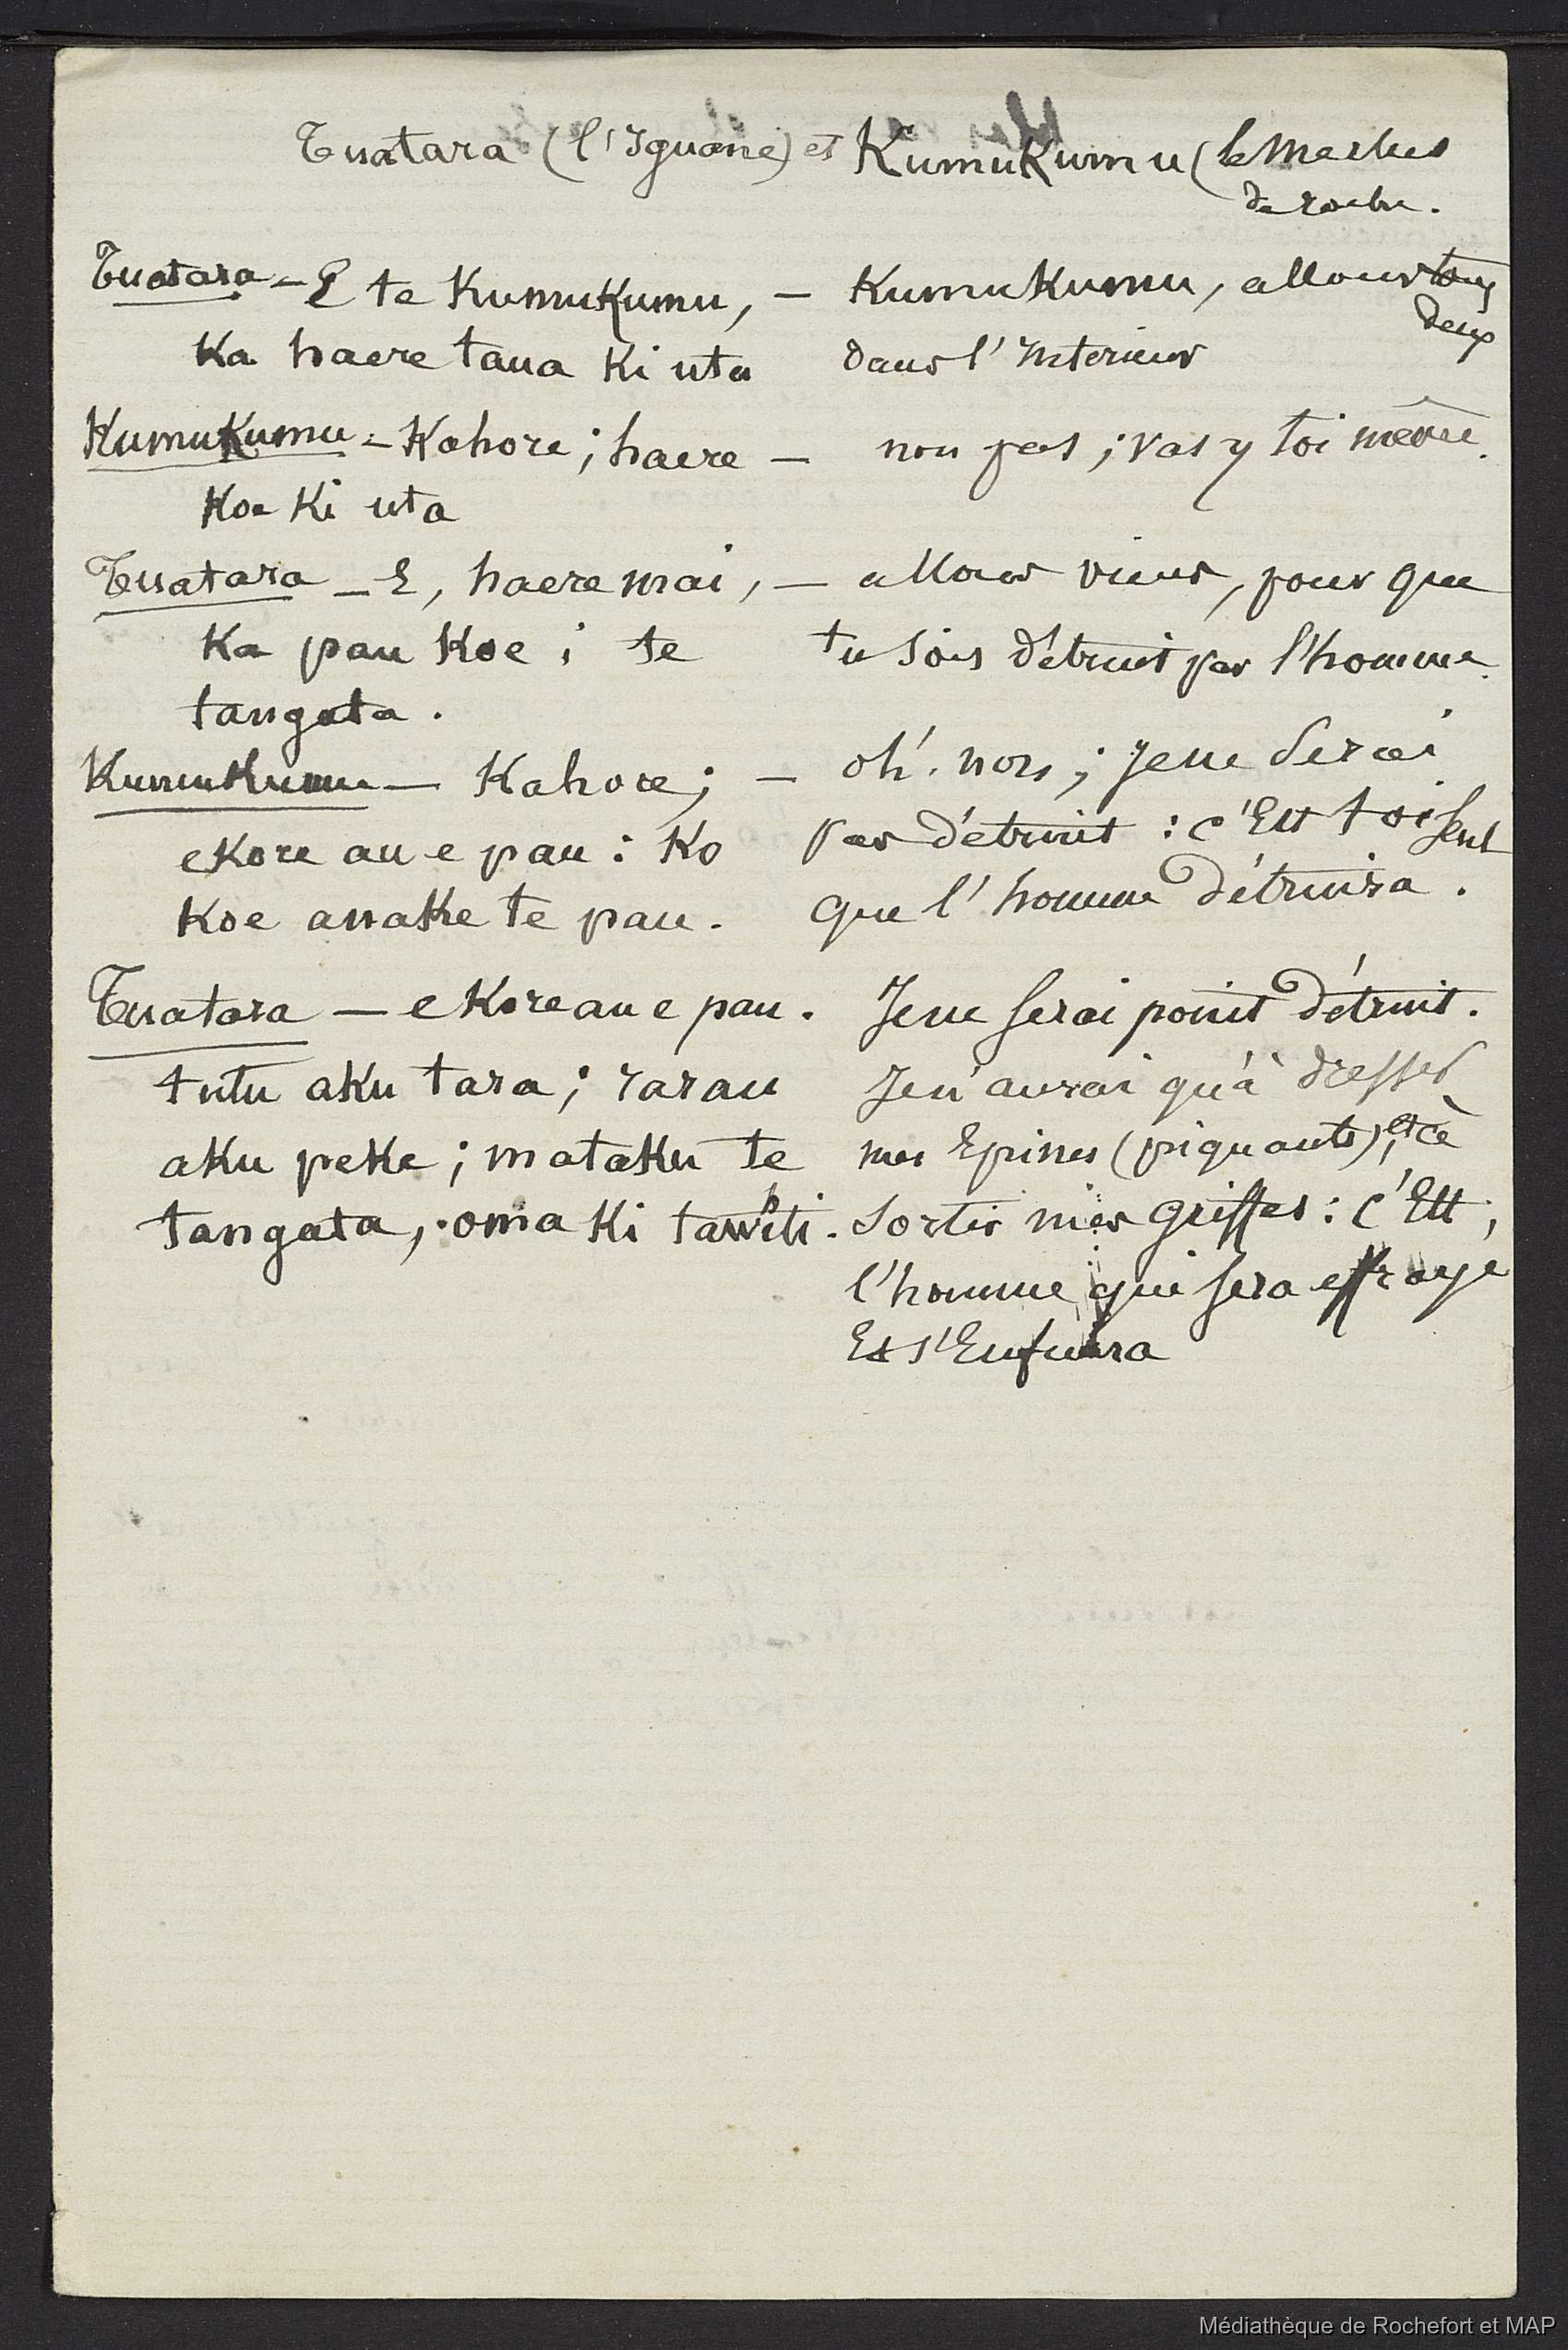 Tuatara (l'Iguane) et KumuKumu (le Merlus
de roche.
Tuatara - E te KumuKumu, - KumuKumu, allons tous
deux
Ka haere taua Ki uta dans l'Interieur
KumuKumu - Kahore; haere - non pas; vas y toi même.
Koe Ki uta
Tuatara - E, haere mai, - allons viens, pour que
Ka pau Koe i te tu sois détruit par l'homme.
tangata.
KumuKumu - Kahore; - oh! non; Je ne serai
eKore au e pau: Ko pas détruit: c'Est toi seul
Koe anaKe te pau. que l'homme détruira.
Tuatara - e Kore au e pau. Je ne serai point détruit.
tutu aKu tara; rarau Je n'aurai qu'à dresser
aKu peKe; mataKu te mes Epines (piquants), et à
tangata, oma Ki tawhiti. sortir mes griffes: c'Est
l'homme qui sera effrayé
Et s'Enfuira
Médiathèque de Rochefort et MAP